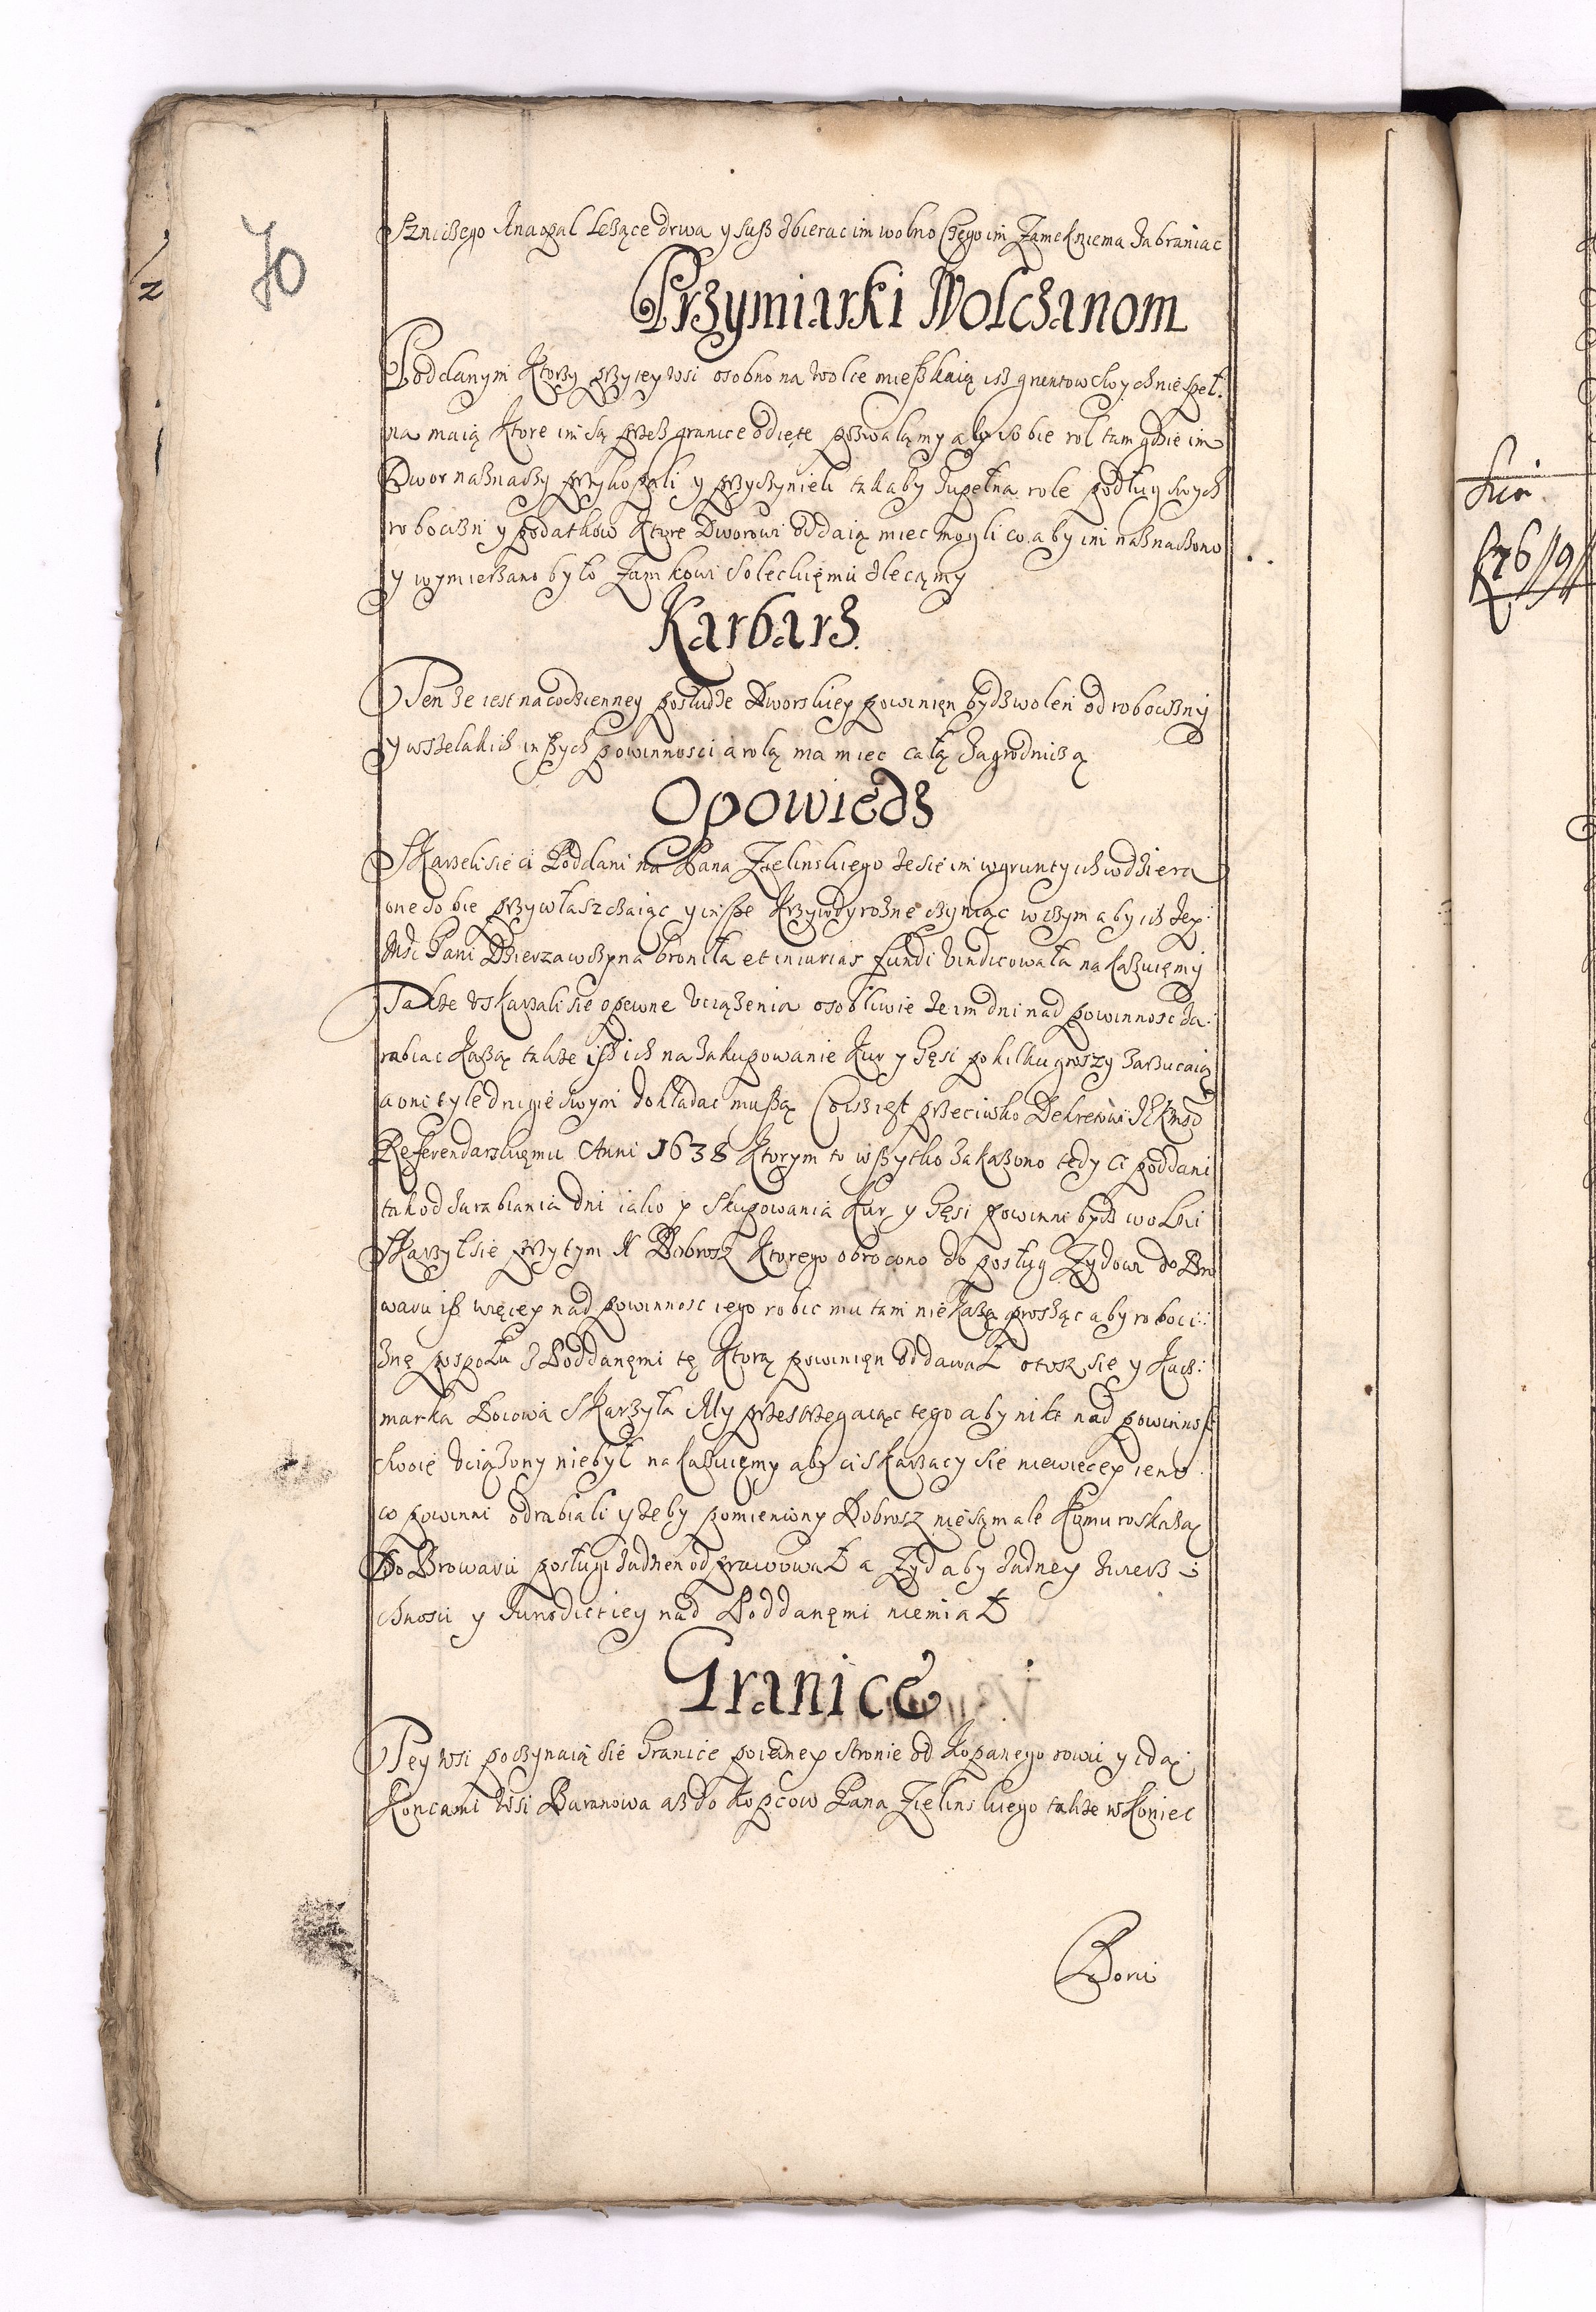 70
szniczego Anaopal Leżące drwa y susz zbierac im wolno czego im Zamek niema zabraniac
Przymiarki Wolczanom
Poddanym Ktorzy przy tey wsi osobno na wolce mieszkaią isz gruntow swych nie zpeł:
na maią Ktore im są przez granice odięte pozwalamy aby sobie rol tam gdzie im
Dwor naznaczy przykopali y przyczynieli tak aby zupełna role podług swych
robocizn y podatkow Ktore Dworowi oddaią miec mogli co aby im naznaczono
y wymierzano było Zamkowi Soleckiemu zlecamy
Karbarz
Ten ze iest na codzienney posłudze Dworskiey powinien bydz wolen od robocizny
y wszelakich inszych powinnosci a rolą ma miec całą zagrodniczą
Opowiedz
Skarzeli sie ci Poddani na Pana Zielinskiego ze sie im w grunty ich wdziera
one sobie przywłaszczaiąc y insze Krzywdy rozne czyniąc w czym aby ich Jey
Msc Pani Dzierzawczyna broniła et iniurias fundi vindicowała nakazuiemy
Takze vskarzali sie o pewne vciązenia osobliwie ze im dni nad powinnosc za:
rabiac Każą takze isz ich na zakupowanie Kur y Gęsi po kilku groszy zarzucaią
a oni tyle drugie swymi dokładac muszą Co iż iest przeciwko Dekretowi JKMsc
Referendarskiemu Anni 1638 Ktorym to wszytko zakazono tedy ci poddani
tak od zarabiania dni iako y skupowania Kur y Gęsi powinni bydz wolni
Skarzył sie przy tym N Dobrosz Ktorego obrocono do posług Zydowi do Bro
waru isz więcey nad powinnosc iego robic mu tam nie każą prosząc aby roboci:
znę pospołu z Poddanemi tę Ktorą powinien oddawał otosz się y Kacz:
marka Bocowa Skarzyła My przestrzegaiąc tego aby nikt nad powinnosc
swoię vciązony niebył nakazuiemy aby ci skarzacy sie niewiecey ieno
co powinni odrabiali y zeby pomieniony Dobrosz nie sam ale Komu roskażą
Do Browaru posługi zadnen odprawował a Zyd aby zadney zwierz
chnosci y Jurisdictiey nad Poddanemi niemiał
Granice
Tey wsi poczynaią sie Granice po iedney stronie od Kopanego rowu y idą
Koncami wsi Baranowa asz do Kopcow Pana Zielinskiego takze w Koniec
Boru